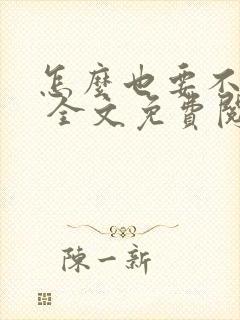 怎麼也要不
全文免費閱
陳一新